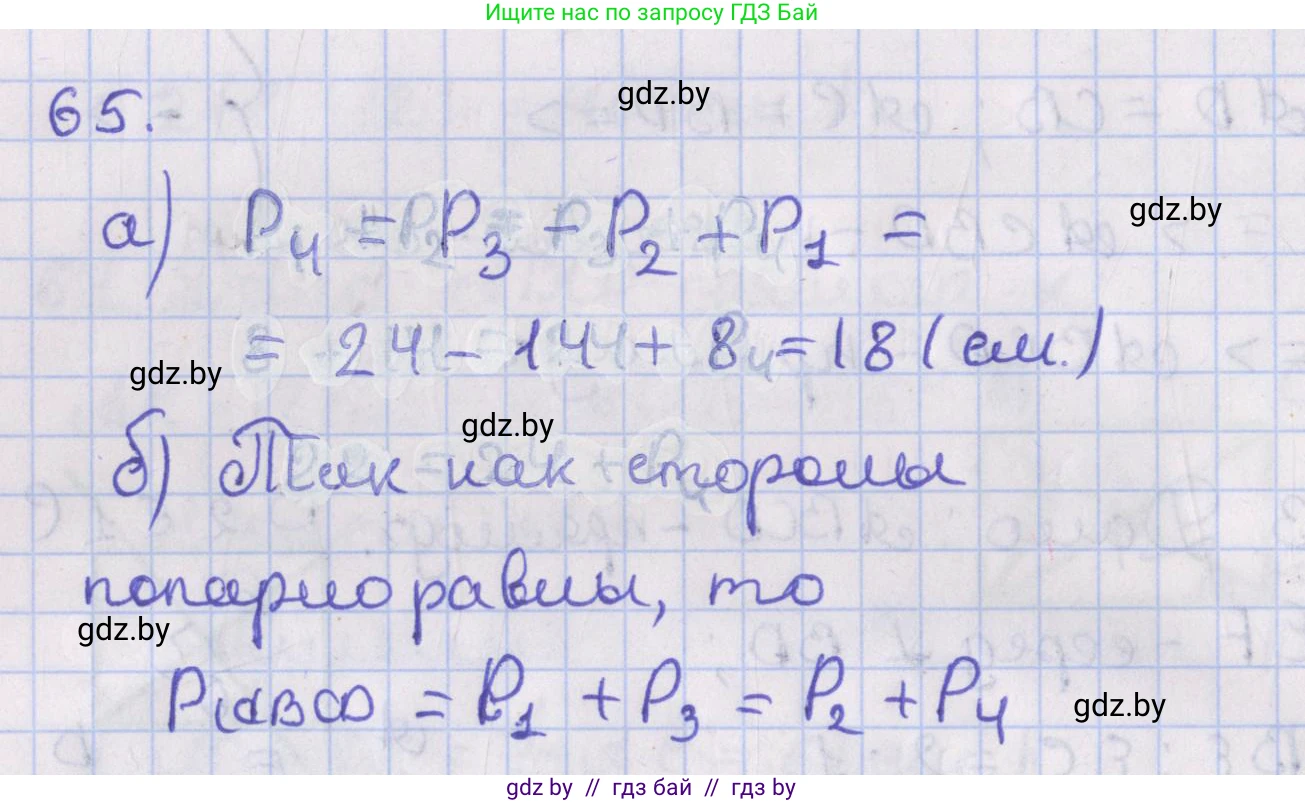 Ищите нас по запросу ГДЗ Бай
gdz.by
65.
а) P₄ = P₃ - P₂ + P₁ =
gdz.by
= 24 - 14 + 8 = 18 (см.)
gdz.by
gdz.by
б) Так как стороны
попарно равны, то
gdz.by
P ABCD = P₁ + P₃ = P₂ + P₄
gdz.by
gdz.by // гдз бай // гдз by